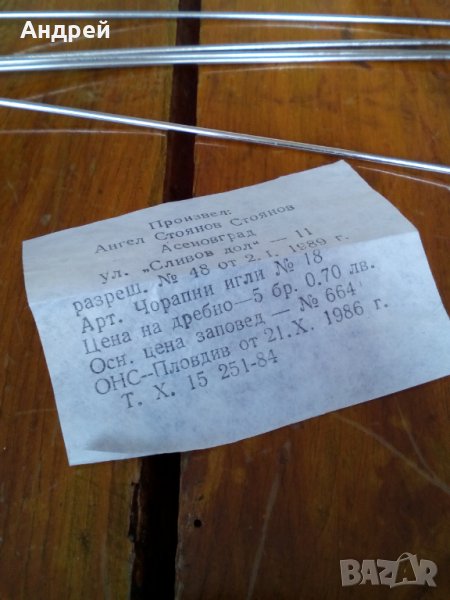 Андрей
Произвел:
Ангел Стоянов Стоянов
Асеновград
ул. „Сливов дол" — 11
разреш. № 48 от 2. I. 1989 г.
Арт. Чорапни игли № 18
Цена на дребно—5 бр. 0.70 лв.
Осн. цена заповед — № 664
ОНС—Пловдив от 21. X. 1986 г.
Т. X. 15 251-84
BAZAR